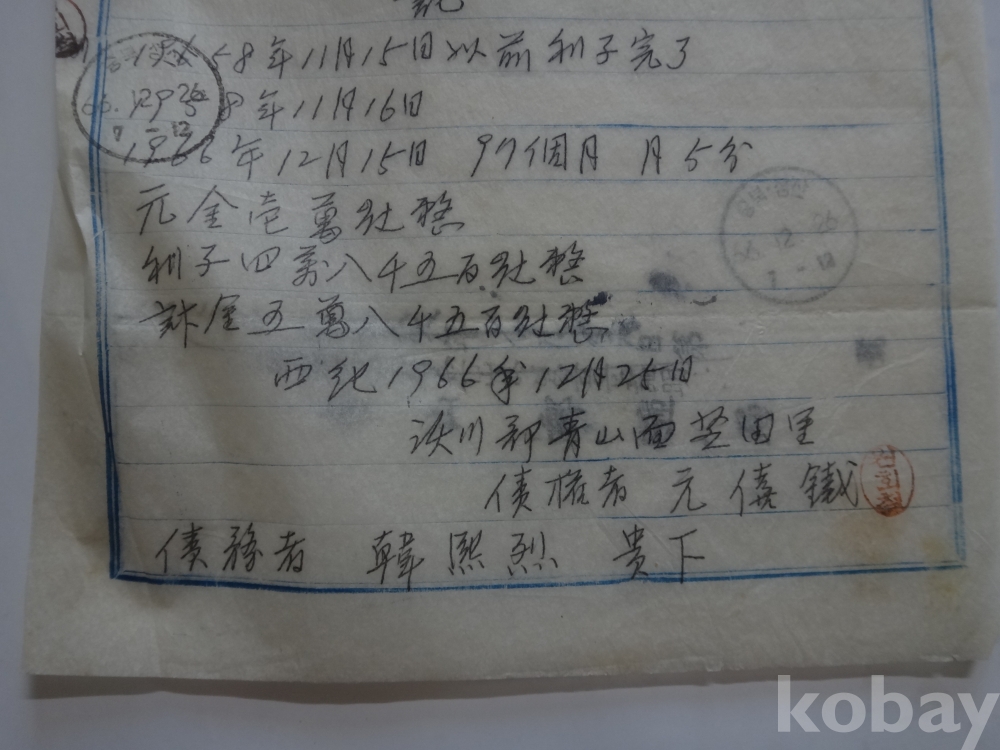 記
1958年11月15日以前利子完了
8年11月16日
1966年12月15日 97個月 月5分
元金壱萬 整
利子四萬八千五百 整
計金五萬八千五百 整
西紀1966年12月25日
沃川郡青山面芝田里
債権者 元僖鐵
債務者 韓熙烈 貴下
66.12.26
kobay